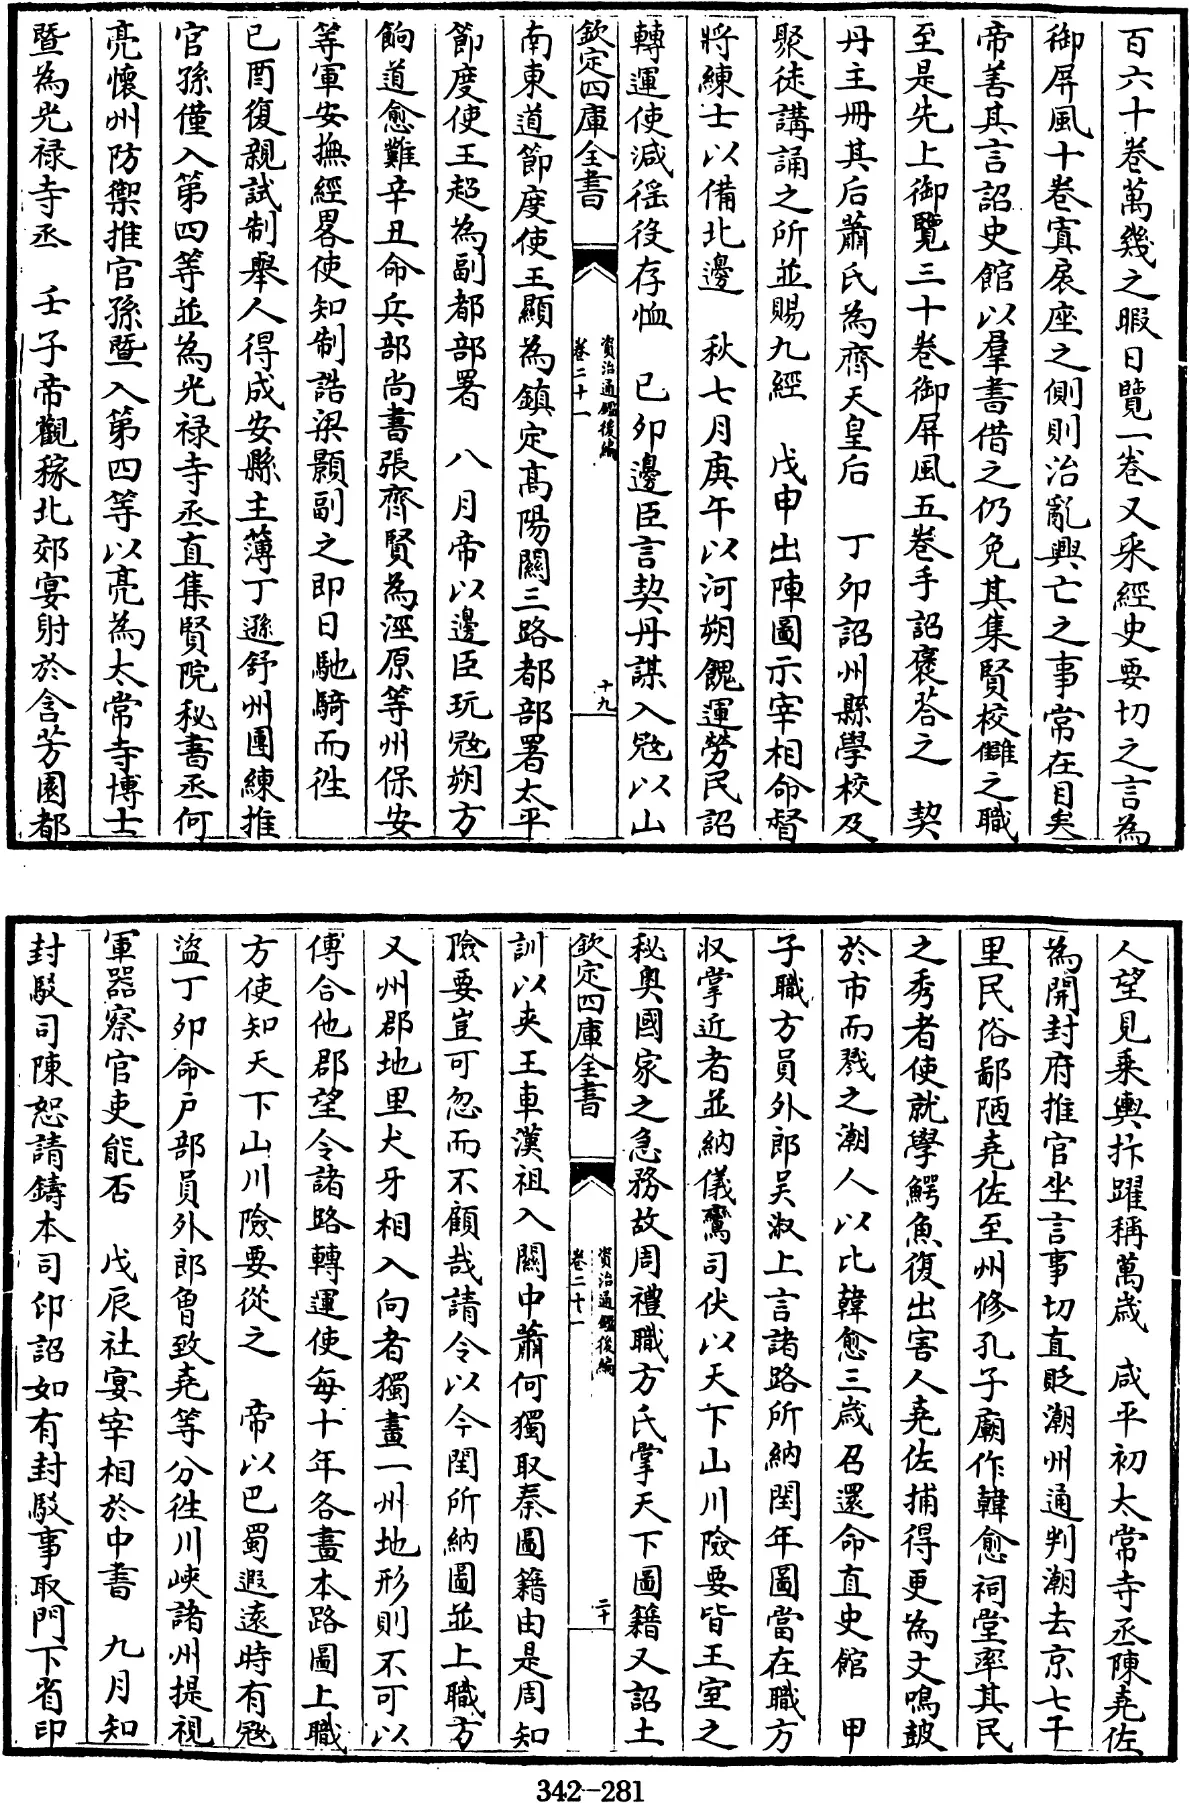 百六十卷萬幾之暇日覽一卷又采經史要切之言為
御屏風十卷寘扆座之側則治亂興亡之事常在目矣
帝善其言詔史館以羣書借之仍免其集賢校讎之職
至是先上御覽三十卷御屏風五卷手詔褒荅之　契
丹主冊其后蕭氏為齊天皇后　丁夘詔州縣學校及
聚徒講誦之所並賜九經　戊申出陣圖示宰相命督
將練士以備北邊　秋七月庚午以河朔餽運勞民詔
轉運使減徭役存恤　已夘邊臣言契丹謀入㓂以山
欽定四庫全書
資治通鑑後編
卷二十一
十九
南東道節度使王顯為鎮定髙陽關三路都部署太平
節度使王超為副都部署　八月帝以邊臣玩㓂朔方
餉道愈難辛丑命兵部尚書張齊賢為涇原等州保安
等軍安撫經畧使知制誥梁顥副之即日馳騎而徃
已酉復親試制舉人得成安縣主薄丁遜舒州團練推
官孫僅入第四等並為光禄寺丞直集賢院秘書丞何
亮懷州防禦推官孫暨入第四等以亮為太常寺博士
暨為光禄寺丞　壬子帝觀稼北郊宴射於含芳園都
人望見乘輿抃躍稱萬歲　咸平初太常寺丞陳堯佐
為開封府推官坐言事切直貶潮州通判潮去京七千
里民俗鄙陋堯佐至州修孔子廟作韓愈祠堂率其民
之秀者使就學鰐魚復出害人堯佐捕得更為文鳴皷
於市而戮之潮人以比韓愈三歲召還命直史館　甲
子職方員外郎吳淑上言諸路所納閏年圖當在職方
収掌近者並納儀鸞司伏以天下山川險要皆王室之
秘奥國家之急務故周禮職方氏掌天下圖籍又詔土
欽定四庫全書
資治通鑑後編
卷二十一
二十
訓以夾王車漢祖入關中蕭何獨取秦圖籍由是周知
險要豈可忽而不顧哉請令以今閏所納圖並上職方
又州郡地里犬牙相入向者獨畫一州地形則不可以
傅合他郡望令諸路轉運使每十年各畫本路圖上職
方使知天下山川險要從之　帝以巴蜀遐遠時有㓂
盗丁夘命户部員外郎曾致堯等分徃川峽諸州提視
軍器察官吏能否　戊辰社宴宰相於中書　九月知
封駁司陳恕請鑄本司印詔如有封駁事取門下省印
342-281